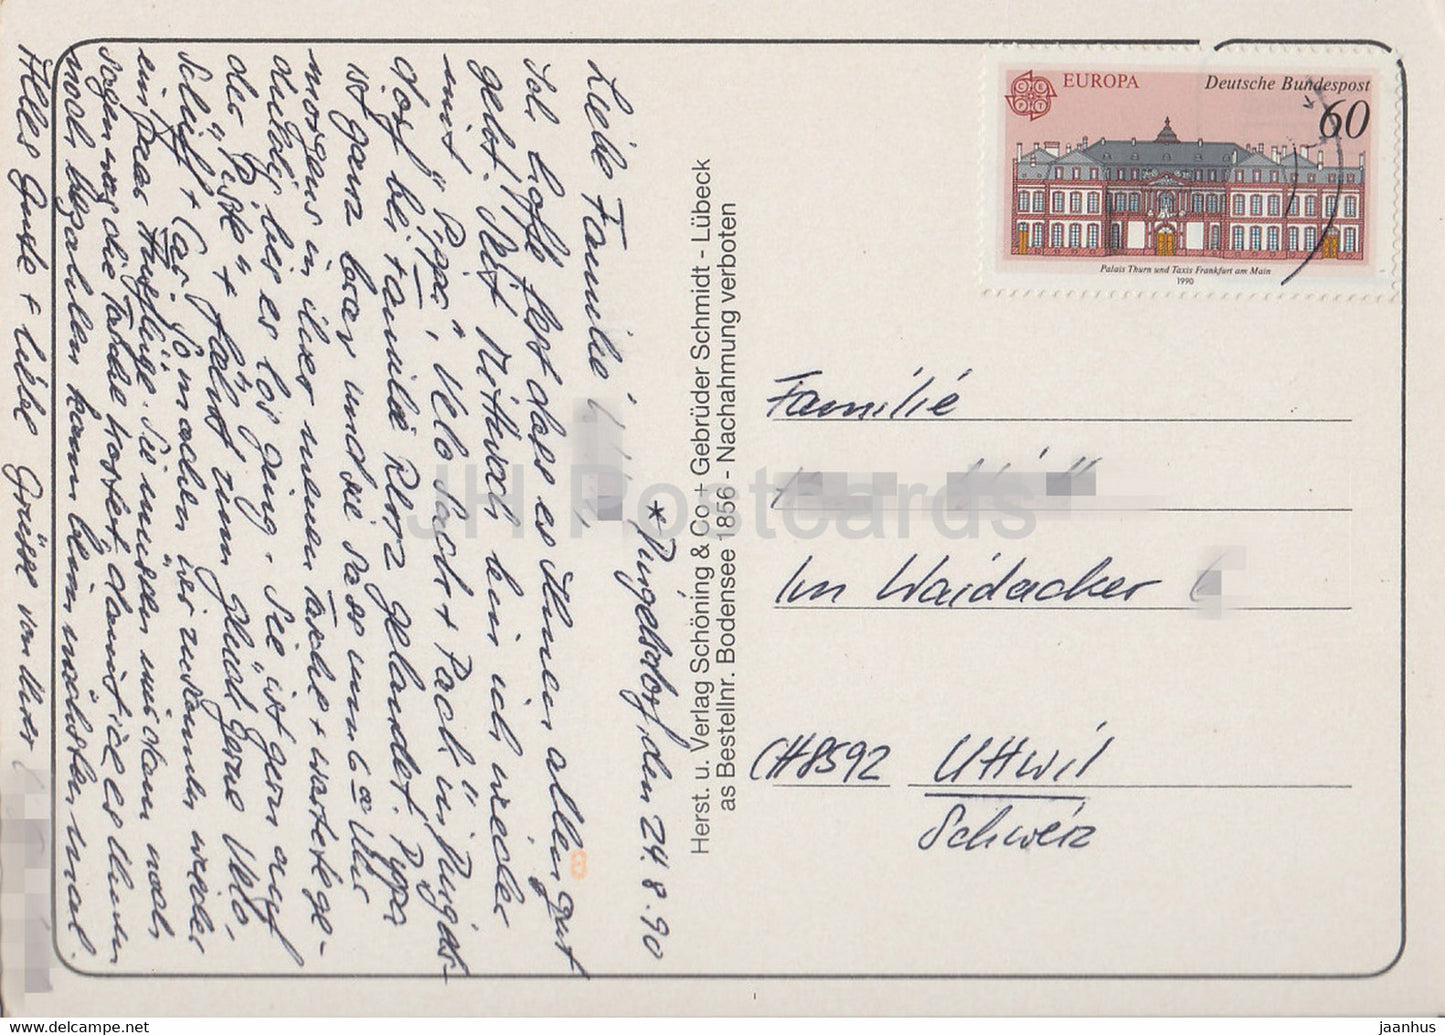 EUROPA
Deutsche Bundespost
60
CEPT
Palais Thurn und Taxis Frankfurt am Main
1990
Familie
Im Waidacker
CH 8592 Uttwil
Schweiz
Herst. u. Verlag Schöning & Co + Gebrüder Schmidt - Lübeck
as Bestellnr. Bodensee 1856 - Nachahmung verboten
den 24.8.90
Liebe Familie
Ich hoffe fest dass es Ihnen allen gut
geht. Seit Mittwoch bin ich wieder
mit "Pippa", Velo Sack + Pack in
dorf bei Familie gelandet. Pippa
ist ganz brav und sie sass um 6 Uhr
morgens in ihrer neuen Tasche + wartete ge-
duldig bis es los ging. Sie ist gern auf
der "Piste" + fährt zum Glück gerne Velo,
Schiff + Car. So machen wir zusammen wieder
ein paar Ausflüge. Sie müssen mir dann noch
sagen was die Tasche kostet damit ich es Ihnen
noch bezahlen kann beim nächsten mal.
Alles Gute + liebe Grüsse von Ihrer
JH Postcards
www.hippostcard.com/store/jaanhus